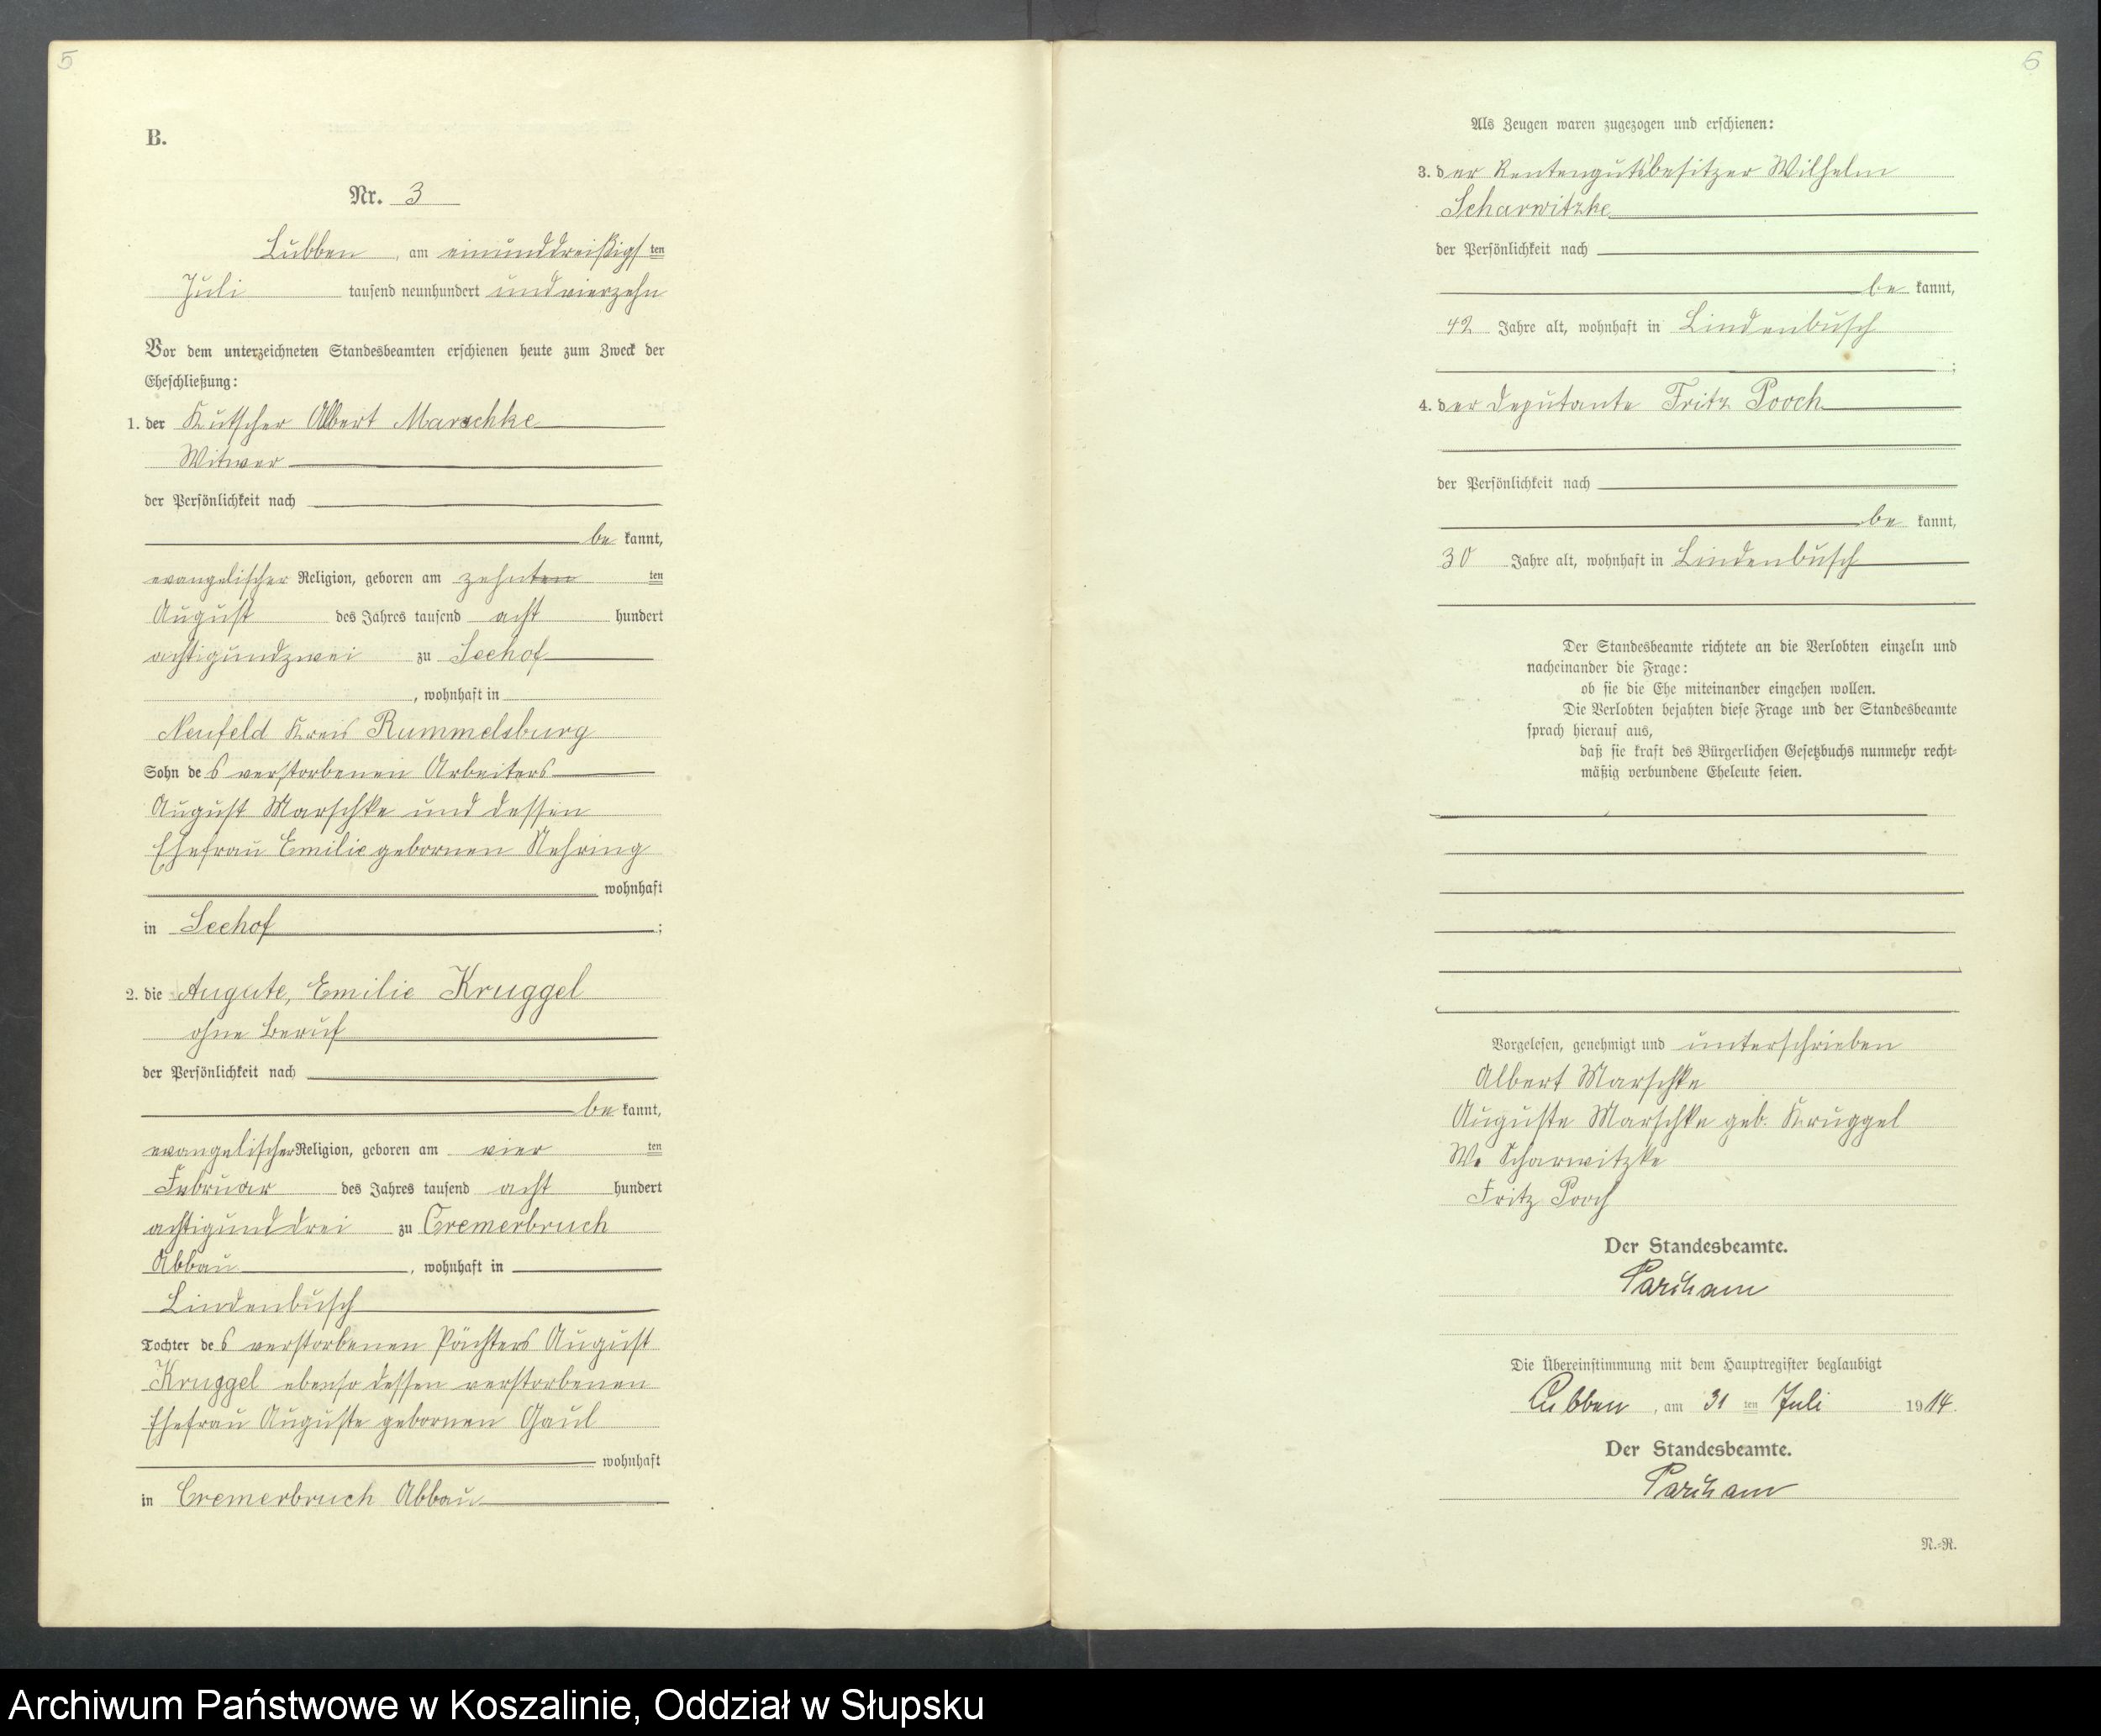 5
B.
Nr. 3
Lubben, am einunddreißigsten
Juli tausend neunhundert undvierzehn
Vor dem unterzeichneten Standesbeamten erschienen heute zum Zweck der
Eheschließung:
1. der Kutscher Albert Marschke
Witwer
der Persönlichkeit nach
be kannt,
evangelischer Religion, geboren am zehnten ten
August des Jahres tausend acht hundert
achtigundzwei zu Seehof
, wohnhaft in
Neufeld Kreis Rummelsburg
Sohn des verstorbenen Arbeiters
August Marschke und dessen
Ehefrau Emilie gebornen Nehring
wohnhaft
in Seehof ;
2. die Augute, Emilie Kruggel
ohne Beruf
der Persönlichkeit nach
be kannt,
evangelischer Religion, geboren am vier ten
Februar des Jahres tausend acht hundert
achtigunddrei zu Cremerbruch
Abbau, wohnhaft in
Lindenbusch
Tochter des verstorbenen Pächters August
Kruggel ebenso dessen verstorbenen
Ehefrau Auguste gebornen Gaul
wohnhaft
in Cremerbruch Abbau
6
Als Zeugen waren zugezogen und erschienen:
3. der Rentengutsbesitzer Wilhelm
Scharwitzke
der Persönlichkeit nach
be kannt,
42 Jahre alt, wohnhaft in Lindenbusch
;
4. der Deputante Fritz Pooch
der Persönlichkeit nach
be kannt,
30 Jahre alt, wohnhaft in Lindenbusch
Der Standesbeamte richtete an die Verlobten einzeln und
nacheinander die Frage:
ob sie die Ehe miteinander eingehen wollen.
Die Verlobten bejahten diese Frage und der Standesbeamte
sprach hierauf aus,
daß sie kraft des Bürgerlichen Gesetzbuchs nunmehr recht-
mäßig verbundene Eheleute seien.
Vorgelesen, genehmigt und unterschrieben
Albert Marschke
Auguste Marschke geb. Kruggel
W. Scharwitzke
Fritz Pooch
Der Standesbeamte.
Die Übereinstimmung mit dem Hauptregister beglaubigt
Lubben, am 31 ten Juli 1914.
Der Standesbeamte.
N.-R.
Archiwum Państwowe w Koszalinie, Oddział w Słupsku